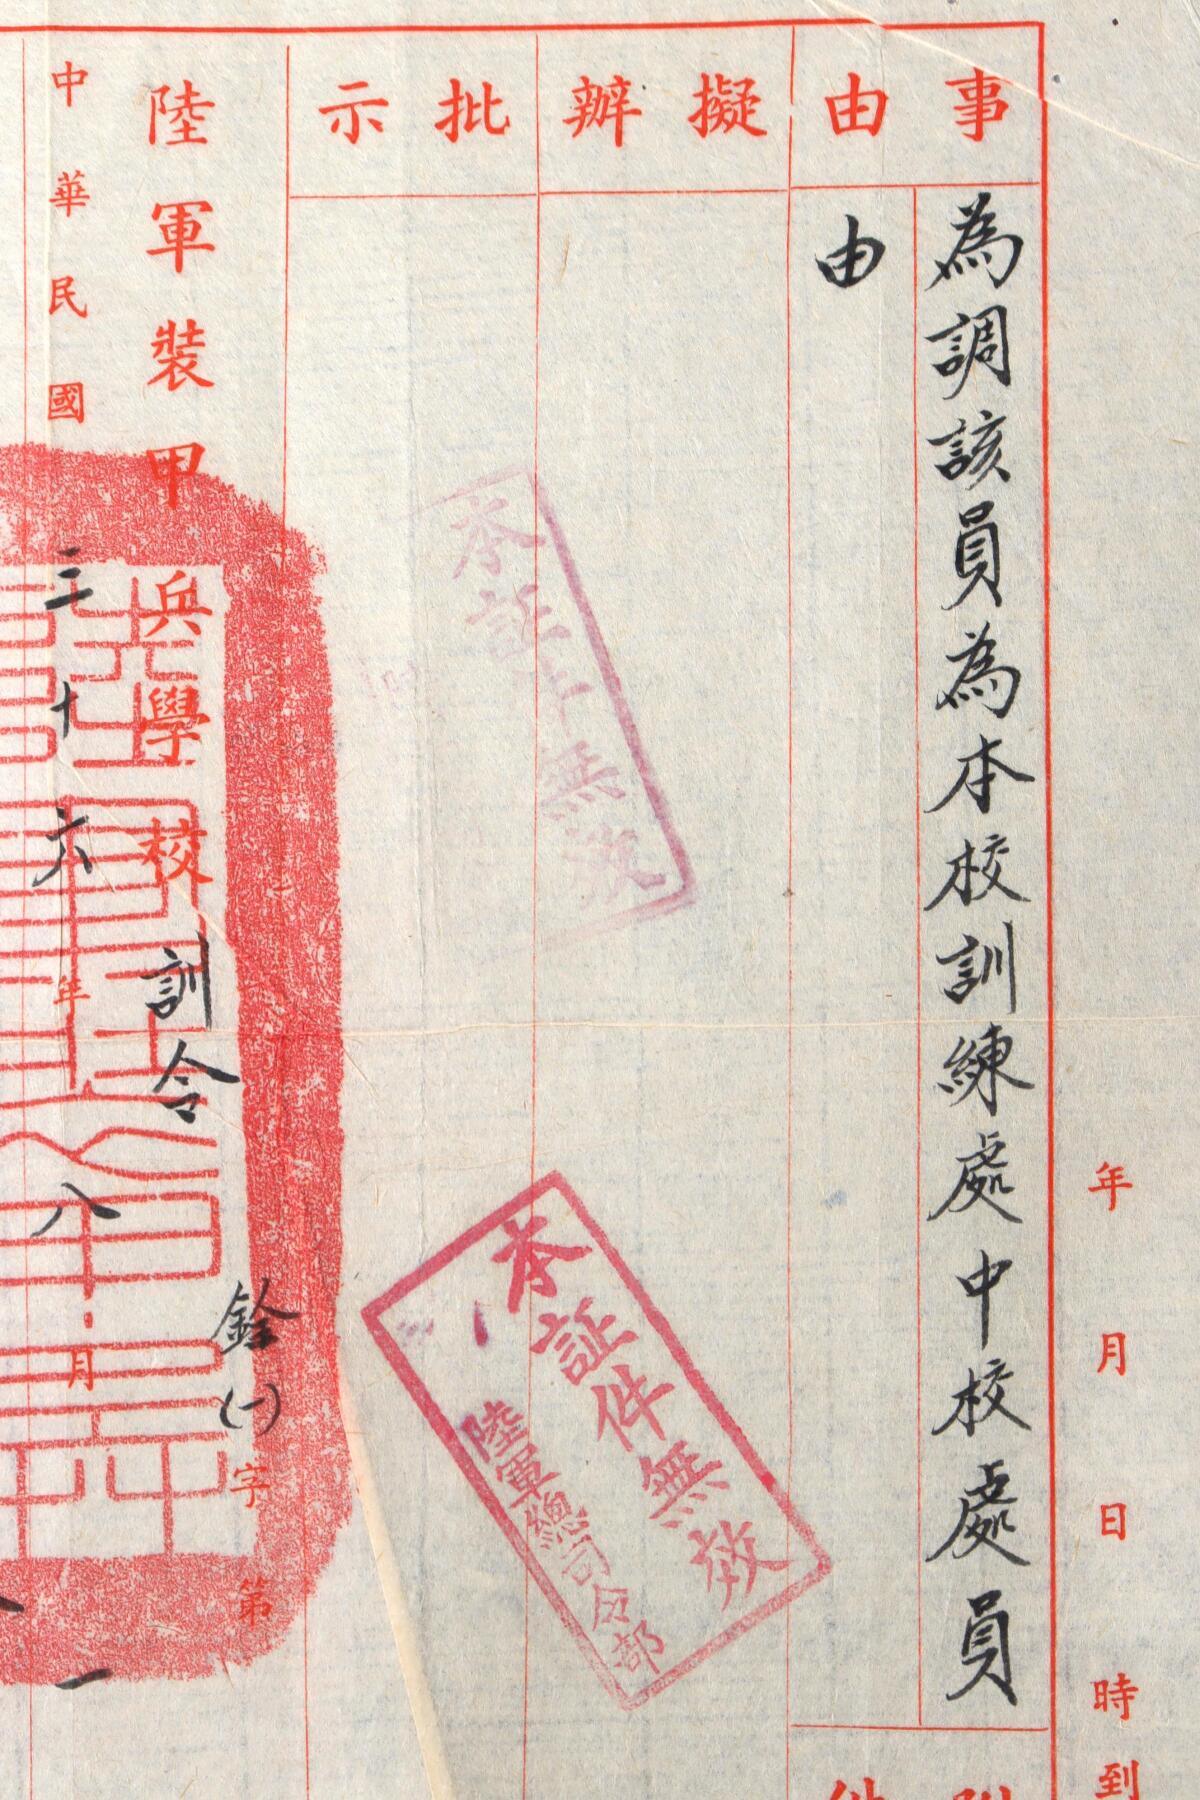 年月日時到
事由
為調該員為本校訓練處中校處員
由
附件
擬辦
批示
本証件無效
本証件無效
陸軍總司令部
陸軍裝甲兵學校訓令
銓(一)字第
中華民國三十六年八月
一